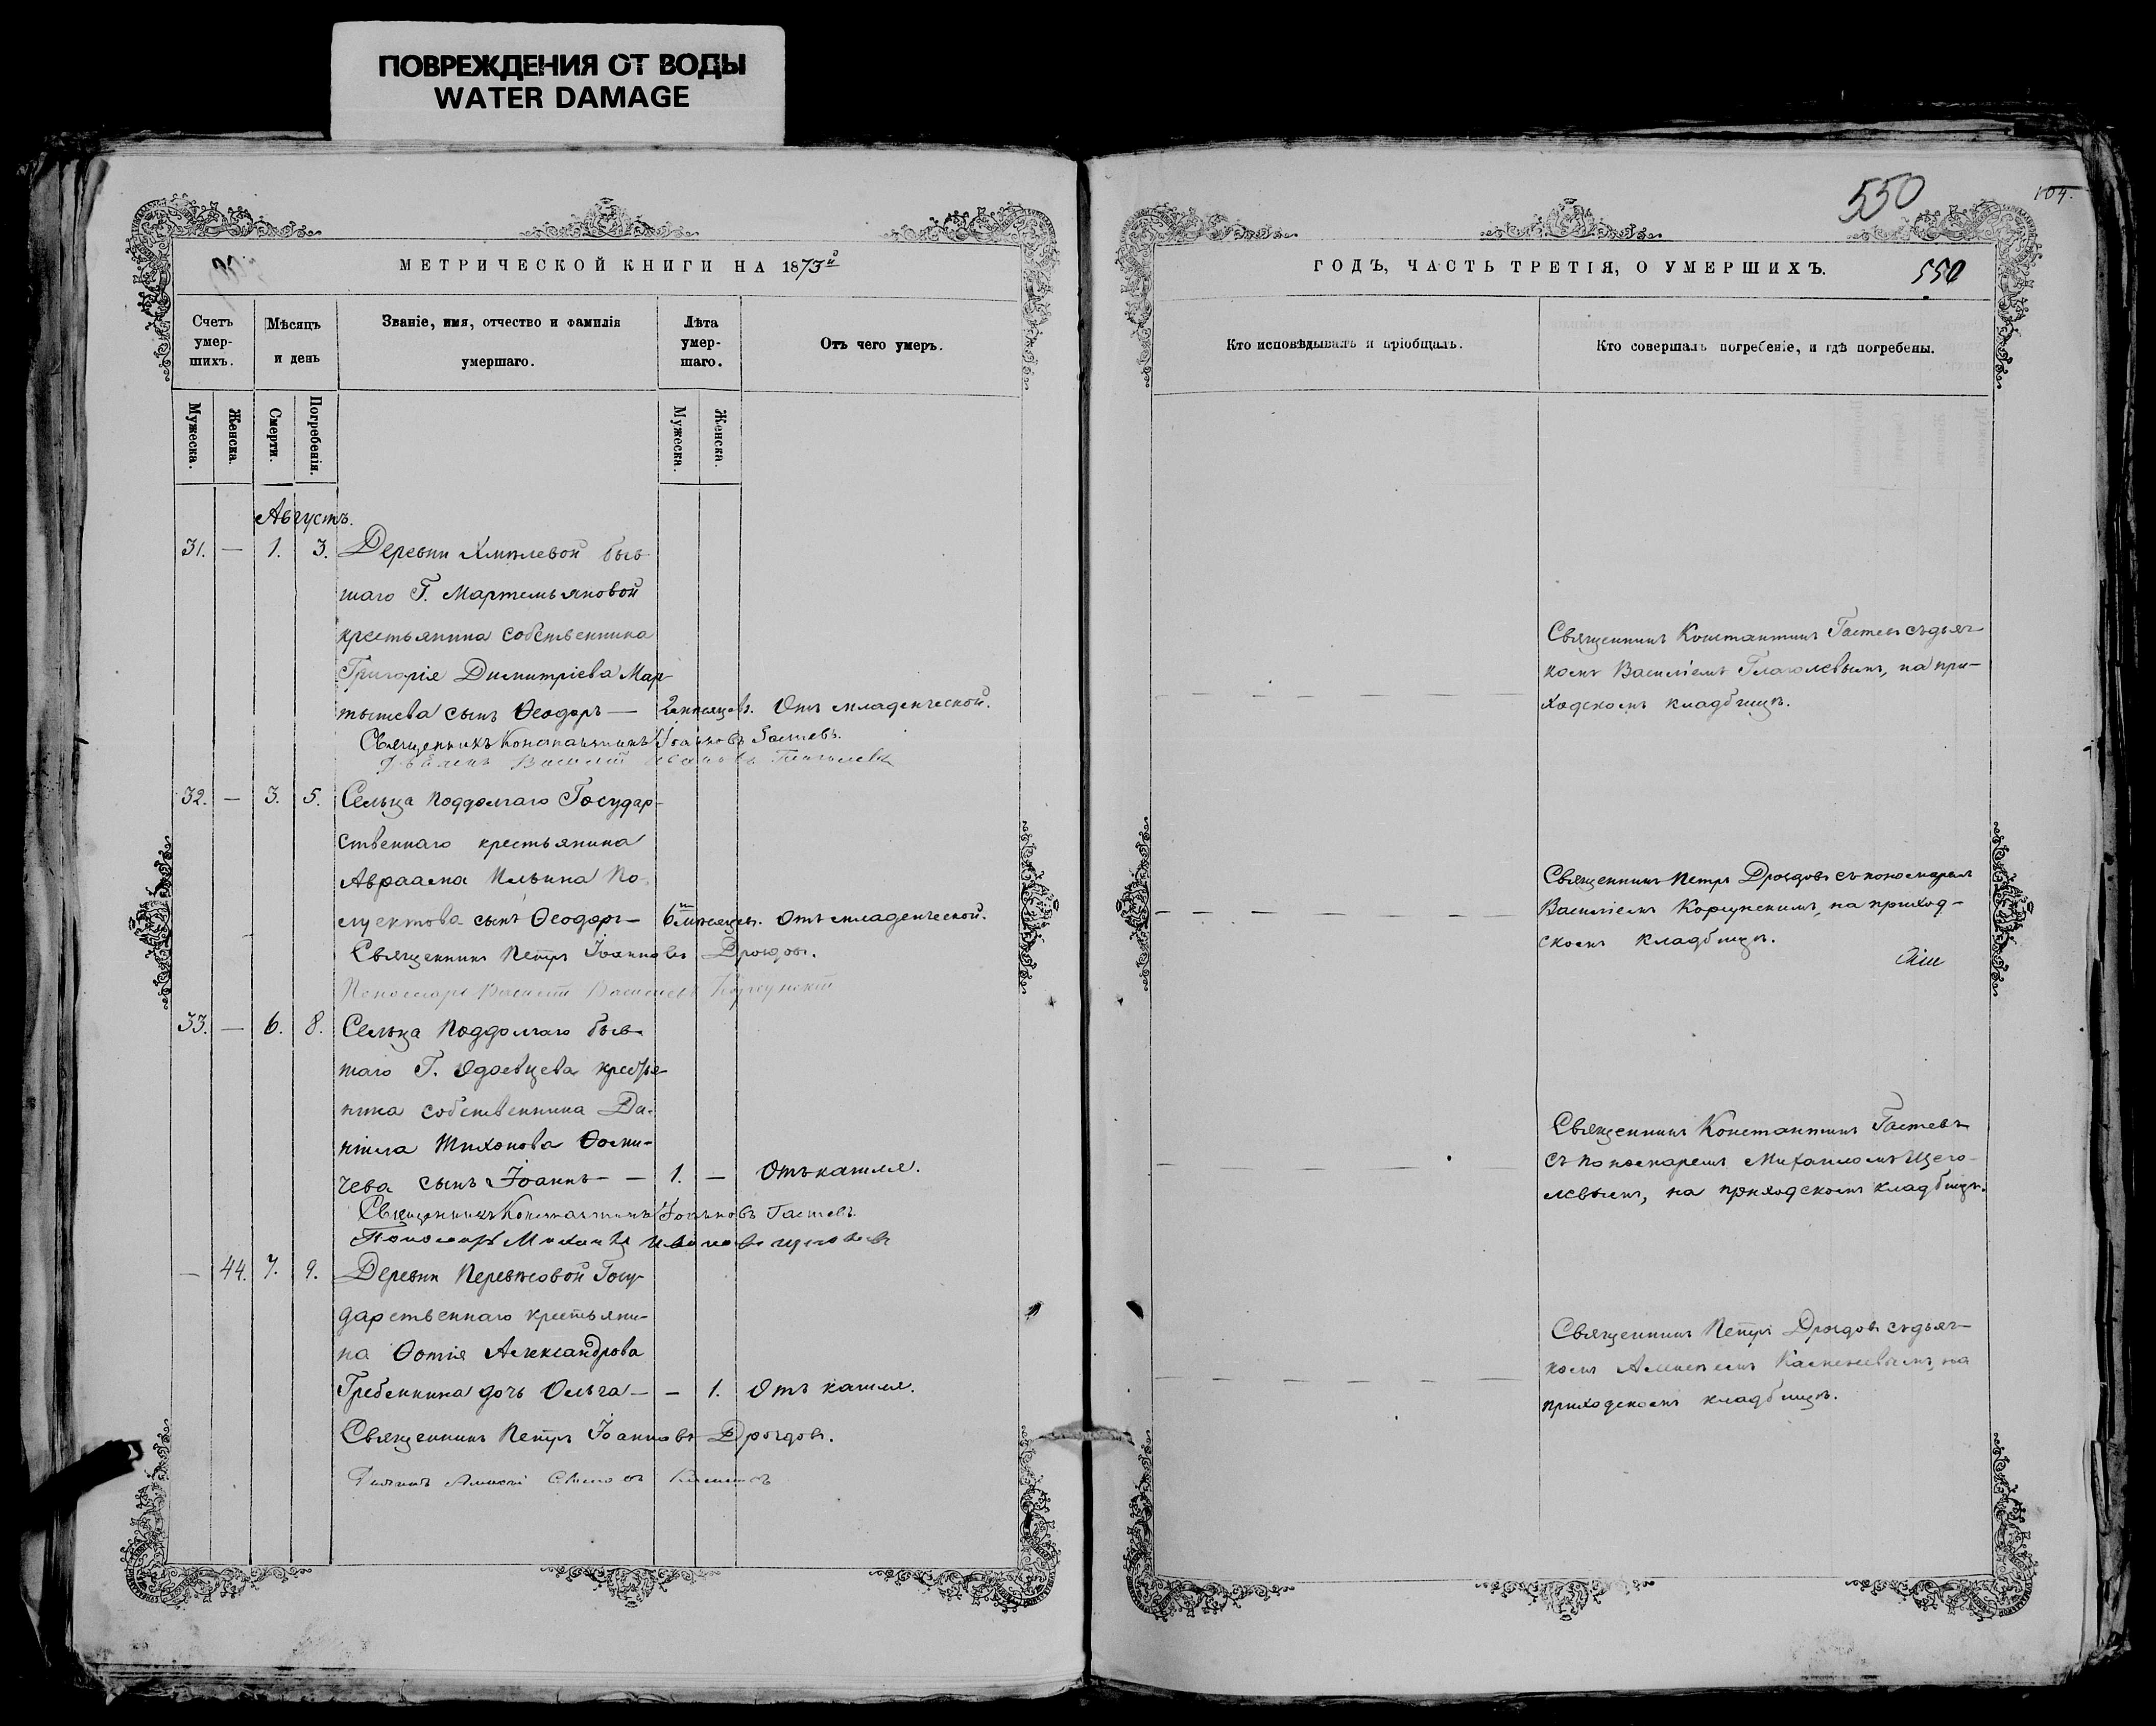 ПОВРЕЖДЕНИЯ ОТ ВОДЫ
WATER DAMAGE
МЕТРИЧЕСКОЙ КНИГИ НА 1873й
Счетъ умер-шихъ.
Мѣсяцъ и день
Званіе, имя, отчество и фамилія умершаго.
Лѣта умер-шаго.
Отъ чего умеръ.
Мужеска.
Женска.
Смерти.
Погребенія.
Мужеска.
Женска.
Августъ.
31. — 1. 3. Деревни Хмѣлевой быв-
шаго Г. Мартемьяновой
крестьянина собственника
Григорія Димитріева Мар-
тышева сынъ Ѳеодоръ — 2 мѣсяцевъ. Отъ младенческой.
Священникъ Константинъ Іоанновъ Гастевъ.
Василій Ивановъ Глаголевъ
32. — 3. 5. Сельца Поддолгаго Государ-
ственнаго крестьянина
Авраама Ильина По-
луектова сынъ Ѳеодоръ — 6ти мѣсяцев. Отъ младенческой.
Священникъ Петръ Іоанновъ Дроздовъ.
Пономарь Василій Васильевъ Корсунскій
33. — 6. 8. Сельца Поддолгаго быв-
шаго Г. Одоевцева крестья-
нина собственника Да-
ніила Тихонова Ѳоми-
чева сынъ Іоаннъ — — 1. — Отъ кашля.
Священникъ Константинъ Іоанновъ Гастевъ.
Пономарь Михаилъ Ивановъ Щеголевъ
— 44. 7. 9. Деревни Перевѣсовой Госу-
дарственнаго крестьяни-
на Ѳотія Александрова
Гребенкина дочь Ольга — — 1. Отъ кашля.
Священникъ Петръ Іоанновъ Дроздовъ.
Алексѣй
550
104.
ГОДЪ, ЧАСТЬ ТРЕТІЯ, О УМЕРШИХЪ.
550
Кто исповѣдывалъ и пріобщалъ.
Кто совершалъ погребеніе, и гдѣ погребены.
Священникъ Константинъ Гастевъ съ дьяч-
комъ Василіемъ Глаголевымъ, на при-
ходскомъ кладбищѣ.
Священникъ Петръ Дроздовъ съ пономаремъ
Василіемъ Корсунскимъ, на приход-
скомъ кладбищѣ.
Священникъ Константинъ Гастевъ
съ пономаремъ Михаиломъ Щего-
левымъ, на приходскомъ кладбищѣ.
Священникъ Петръ Дроздовъ съ дьяч-
комъ Алексѣемъ на
приходскомъ кладбищѣ.